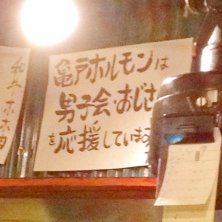 亀戸ホルモンは
男子会・おじさ
を応援しています